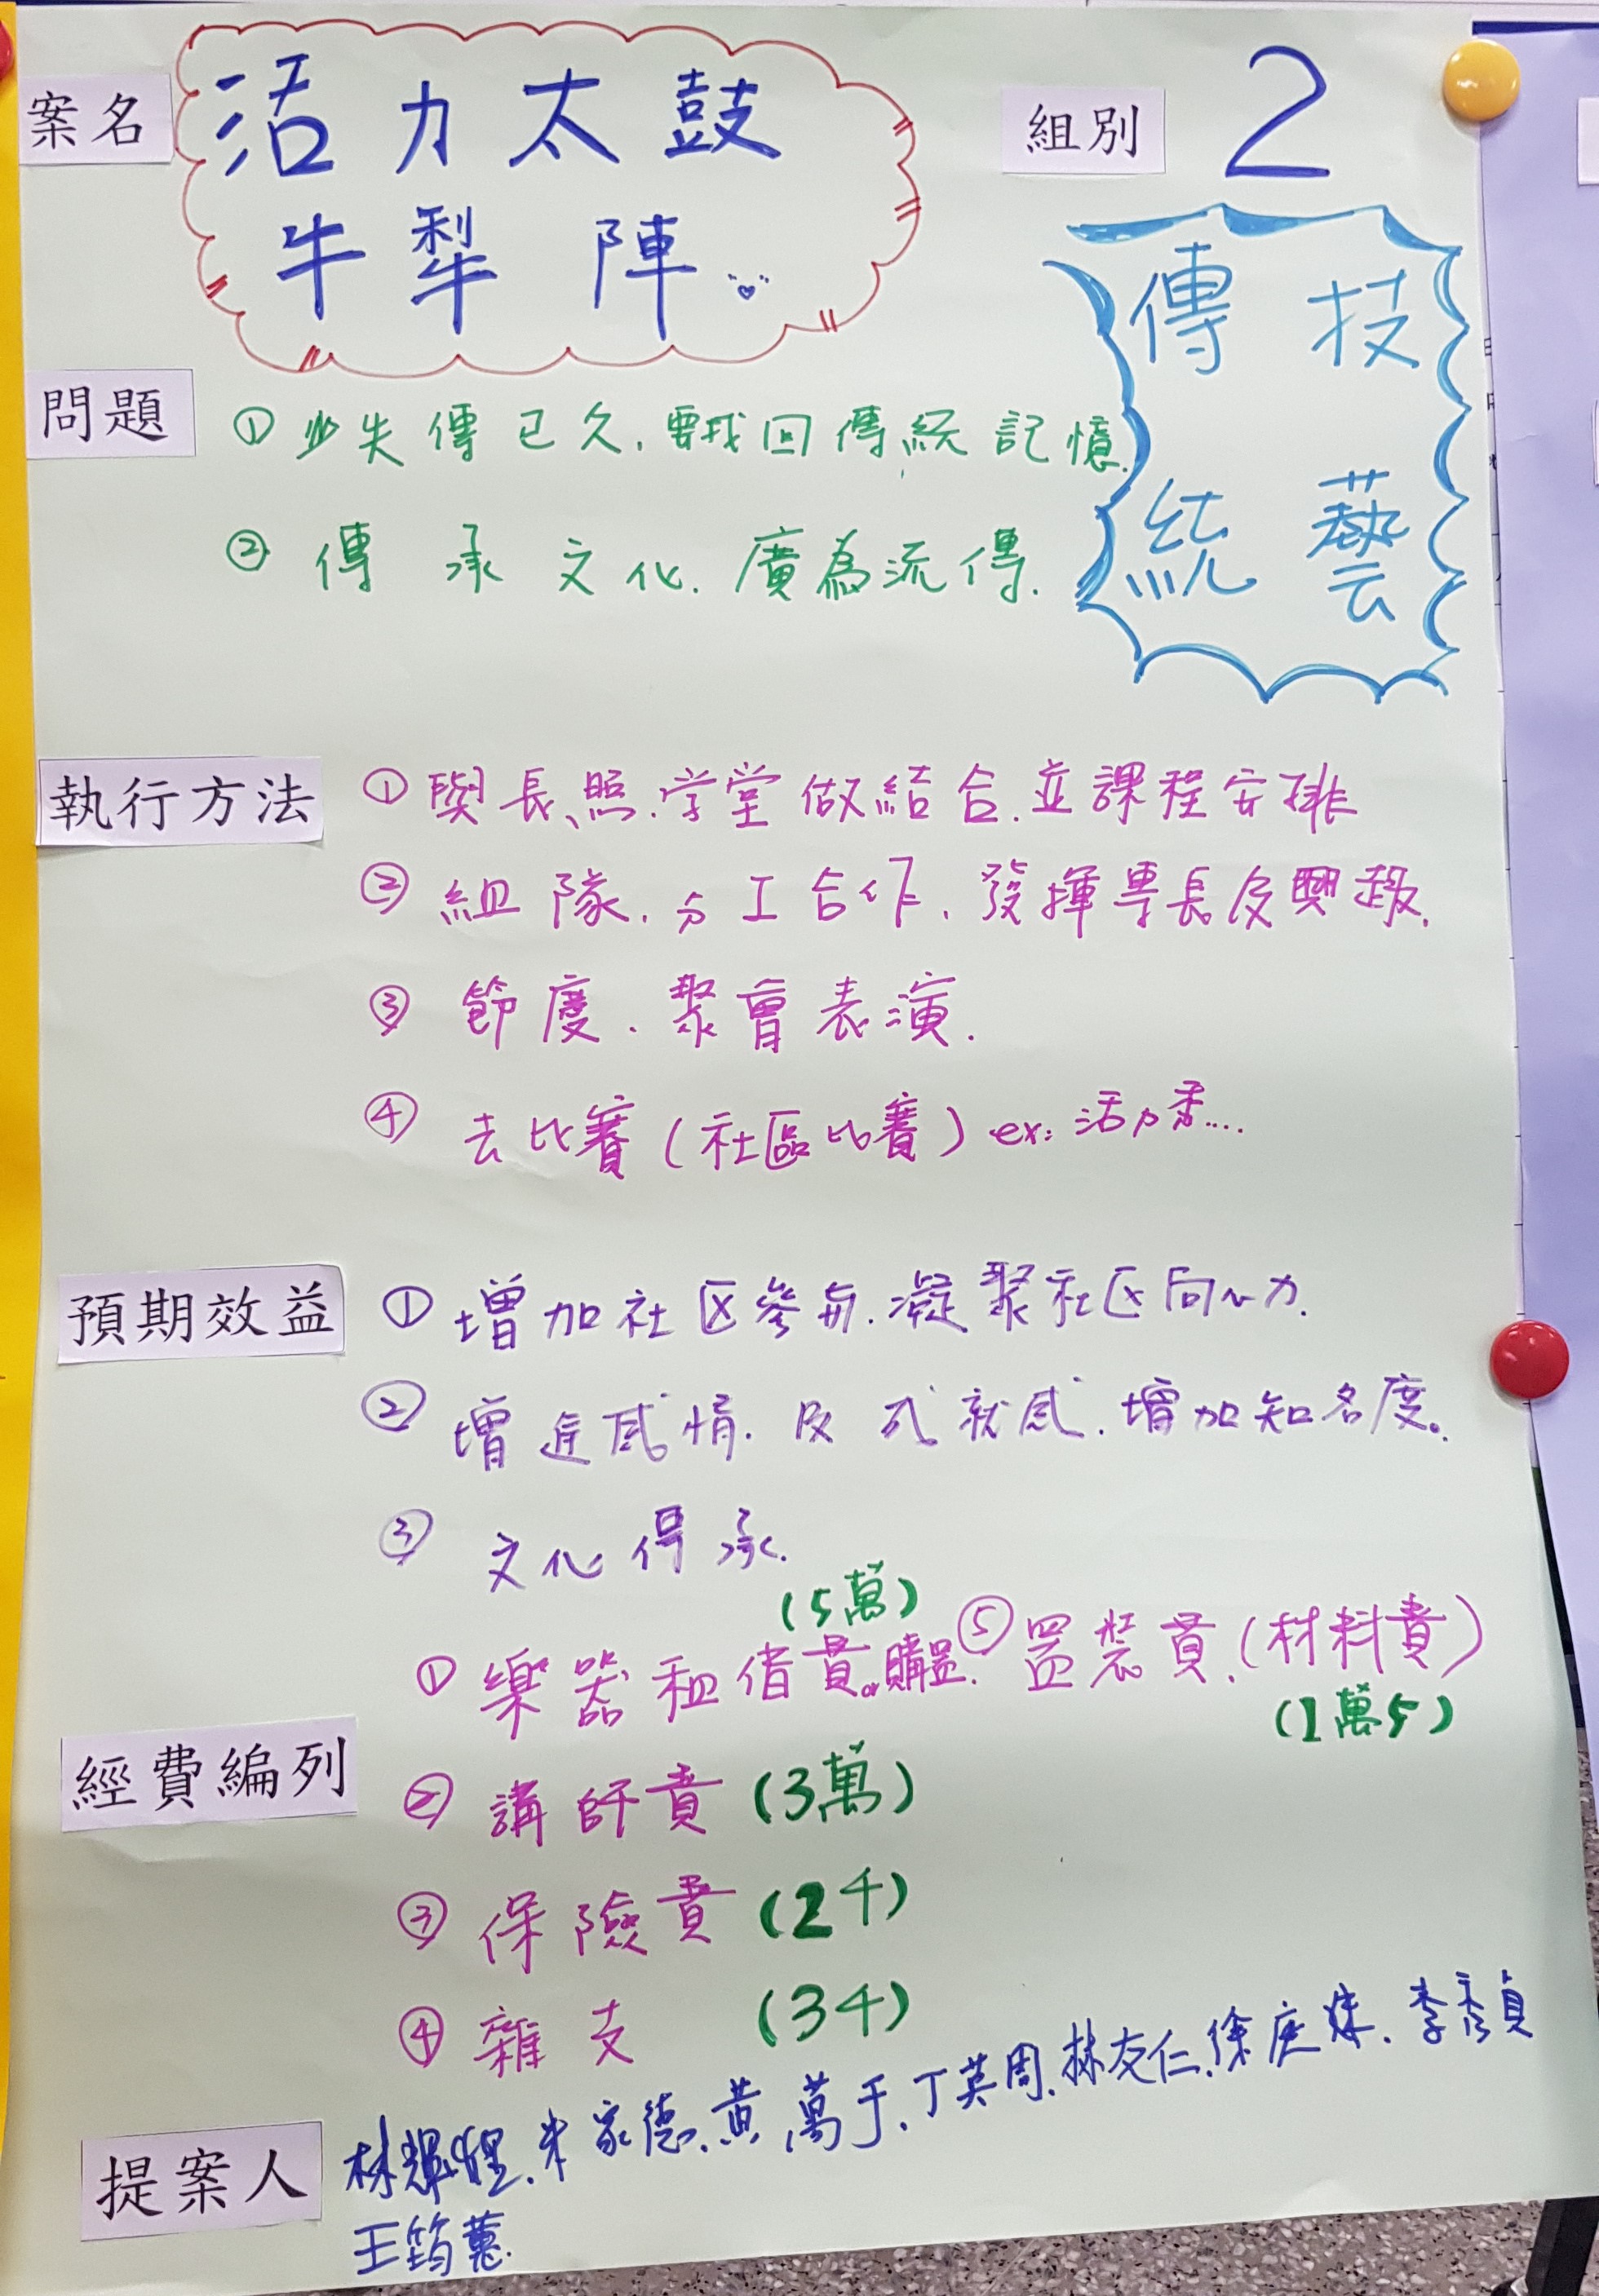 案名
活力太鼓
牛犁陣
組別 2
傳統
技藝
問題
① 失傳已久,要找回傳統記憶.
② 傳承文化.廣為流傳.
執行方法
① 與長照.学堂做結合.並課程安排
② 組隊.分工合作.發揮專長及興趣.
③ 節慶.聚會表演.
④ 去比賽(社區比賽) ex: 活力秀....
預期效益
① 增加社区參與.凝聚社区向心力.
② 增進感情.及成就感.增加知名度。
③ 文化傳承.
經費編列
(5萬)
① 樂器租借費or購置.
② 講師費 (3萬)
③ 保險費 (2千)
④ 雜支 (3千)
⑤ 置裝費.(材料費)
(1萬5)
提案人
家德.黃萬于.丁英周.林友仁.徐庭妹.李秀貞
王筠蕙.